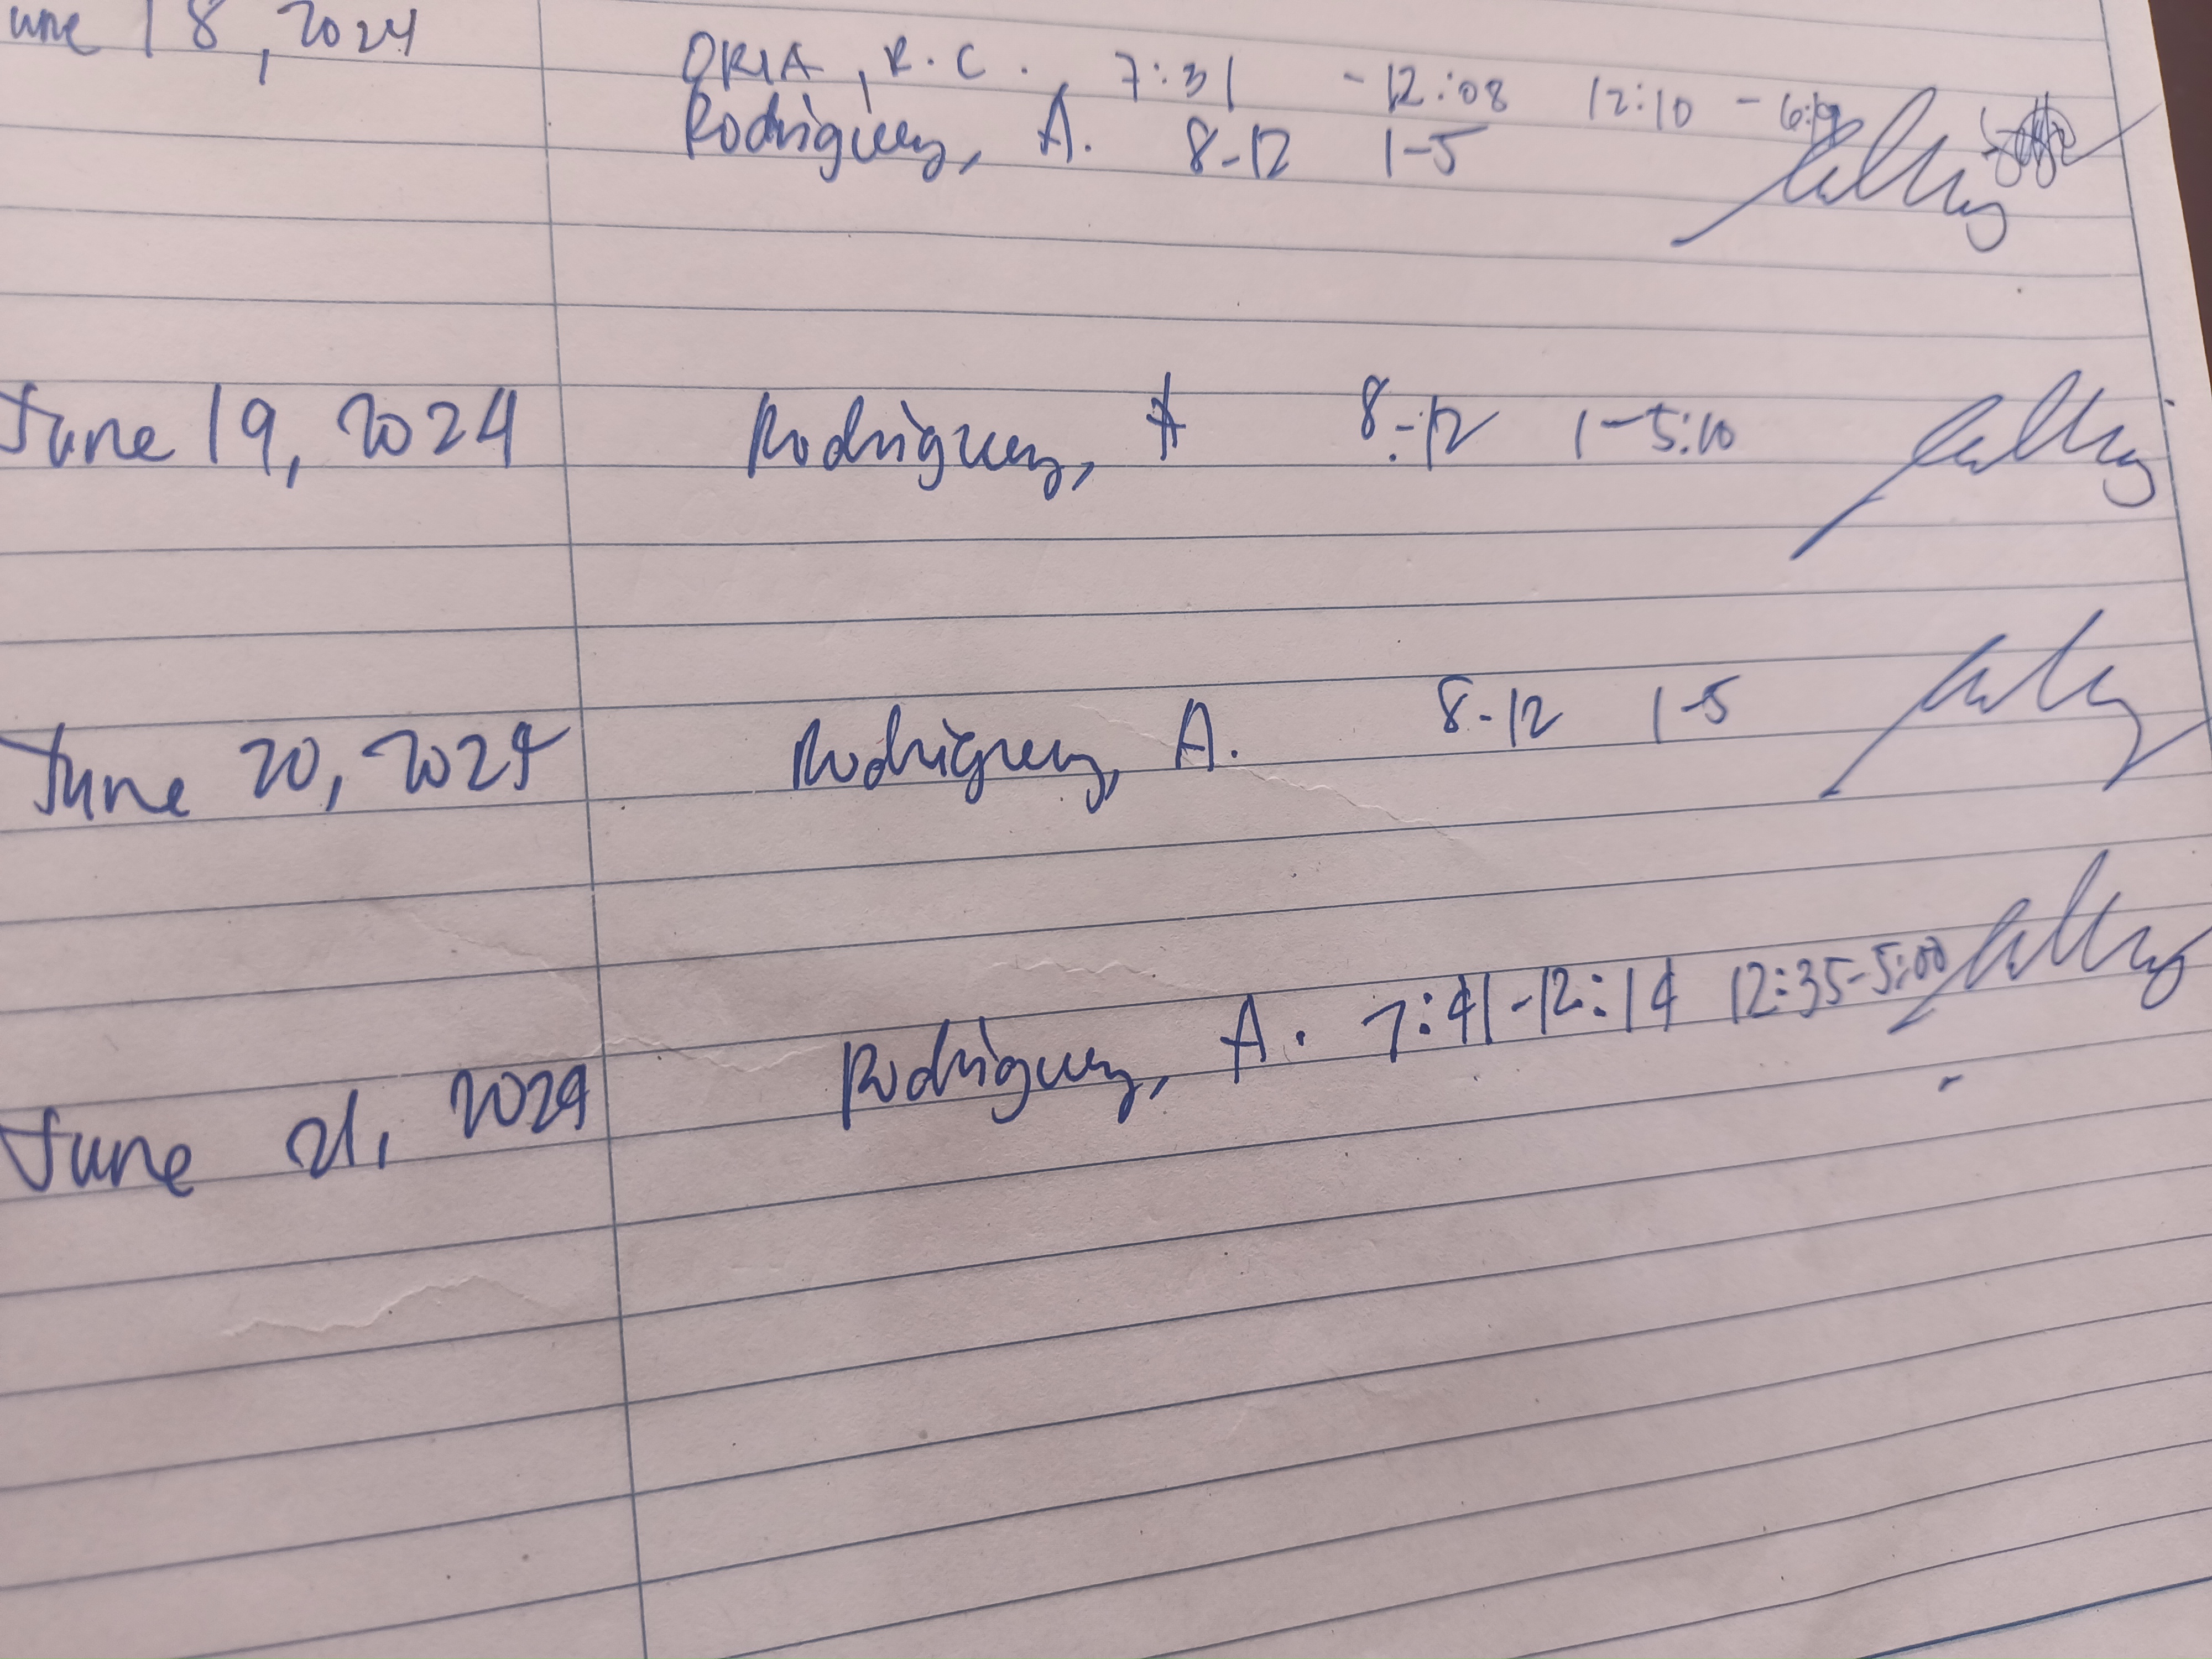 une 18, 2024
ORIA, R.C. 7:31 -12:08 12:10 -
Rodriguez, A. 8-12 1-5
June 19, 2024 Rodriguez, A 8-12 1-5:10
June 20, 2024 Rodriguez, A. 8-12 1-5
June 21, 2024 Rodriguez, A. 7:41-12:14 12:35-5:00